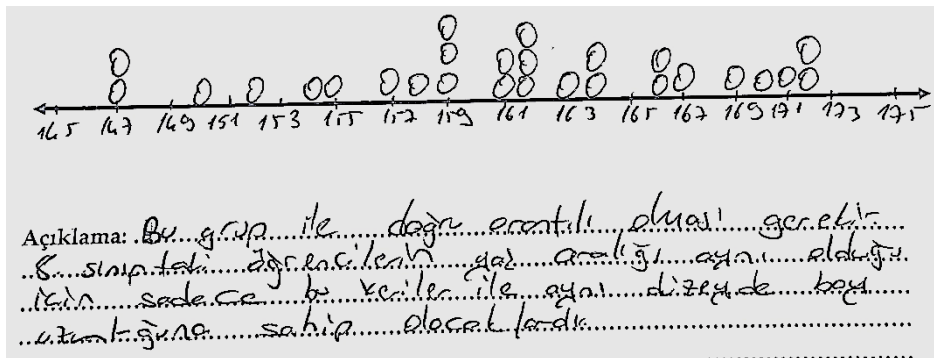 145 147 149 151 153 155 157 159 161 163 165 167 169 171 173 175
Açıklama: Bu grup ile doğru orantılı olması gerekir.
8. sınıftaki öğrencilerin yaş aralığı aynı olduğu
için sadece bu veriler ile aynı düzeyde boy
uzunluğuna sahip olacaklardır